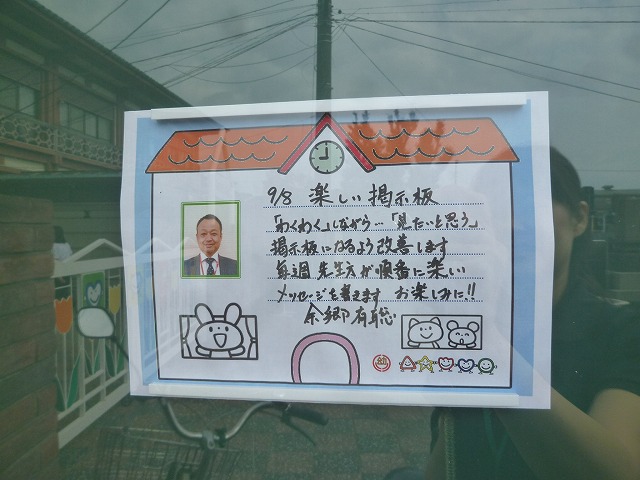 9/8 楽しい掲示板
「わくわく」しながら…「見たいと思う」
掲示板になるよう改善します
毎週 先生方が順番に楽しい
メッセージを書えます お楽しみに!!
余郷有聡